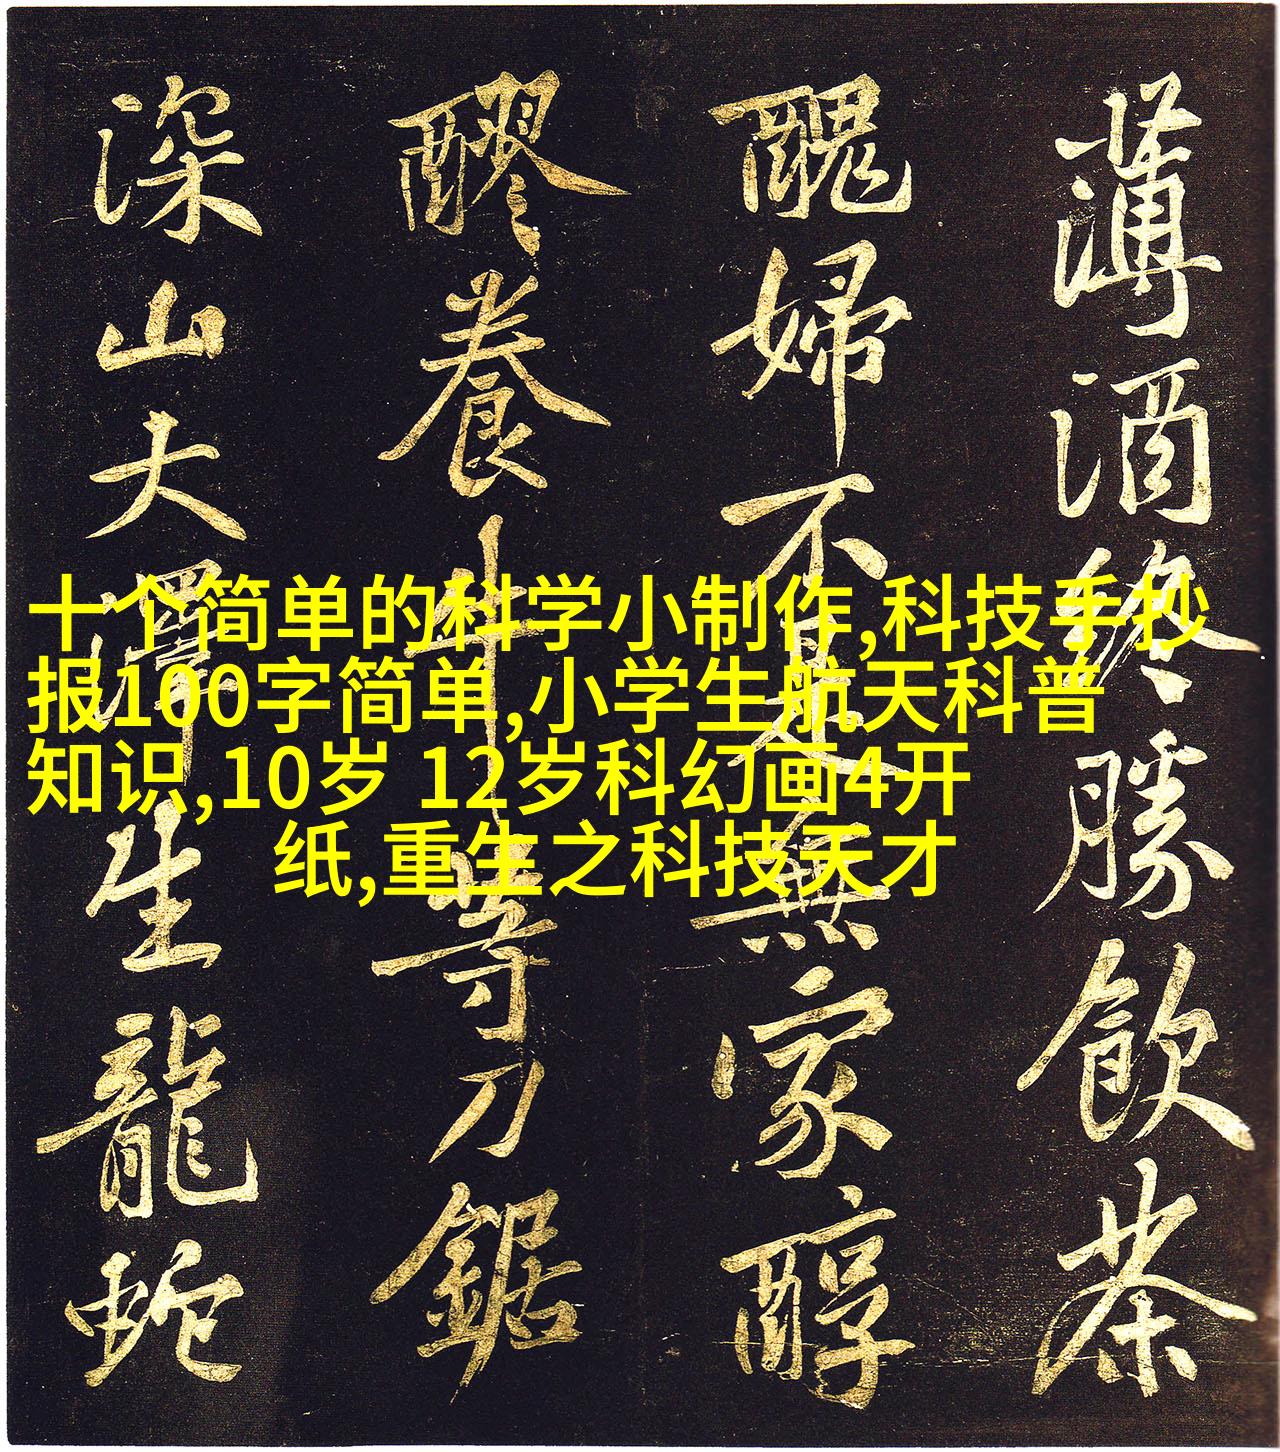 薄酒終勝飲茶
醜婦不是無家醇
醪養牛等刀鋸
深山大澤生龍蛇
十个简单的科学小制作,科技手抄
报100字简单,小学生航天科普
知识,10岁 12岁科幻画4开
纸,重生之科技天才